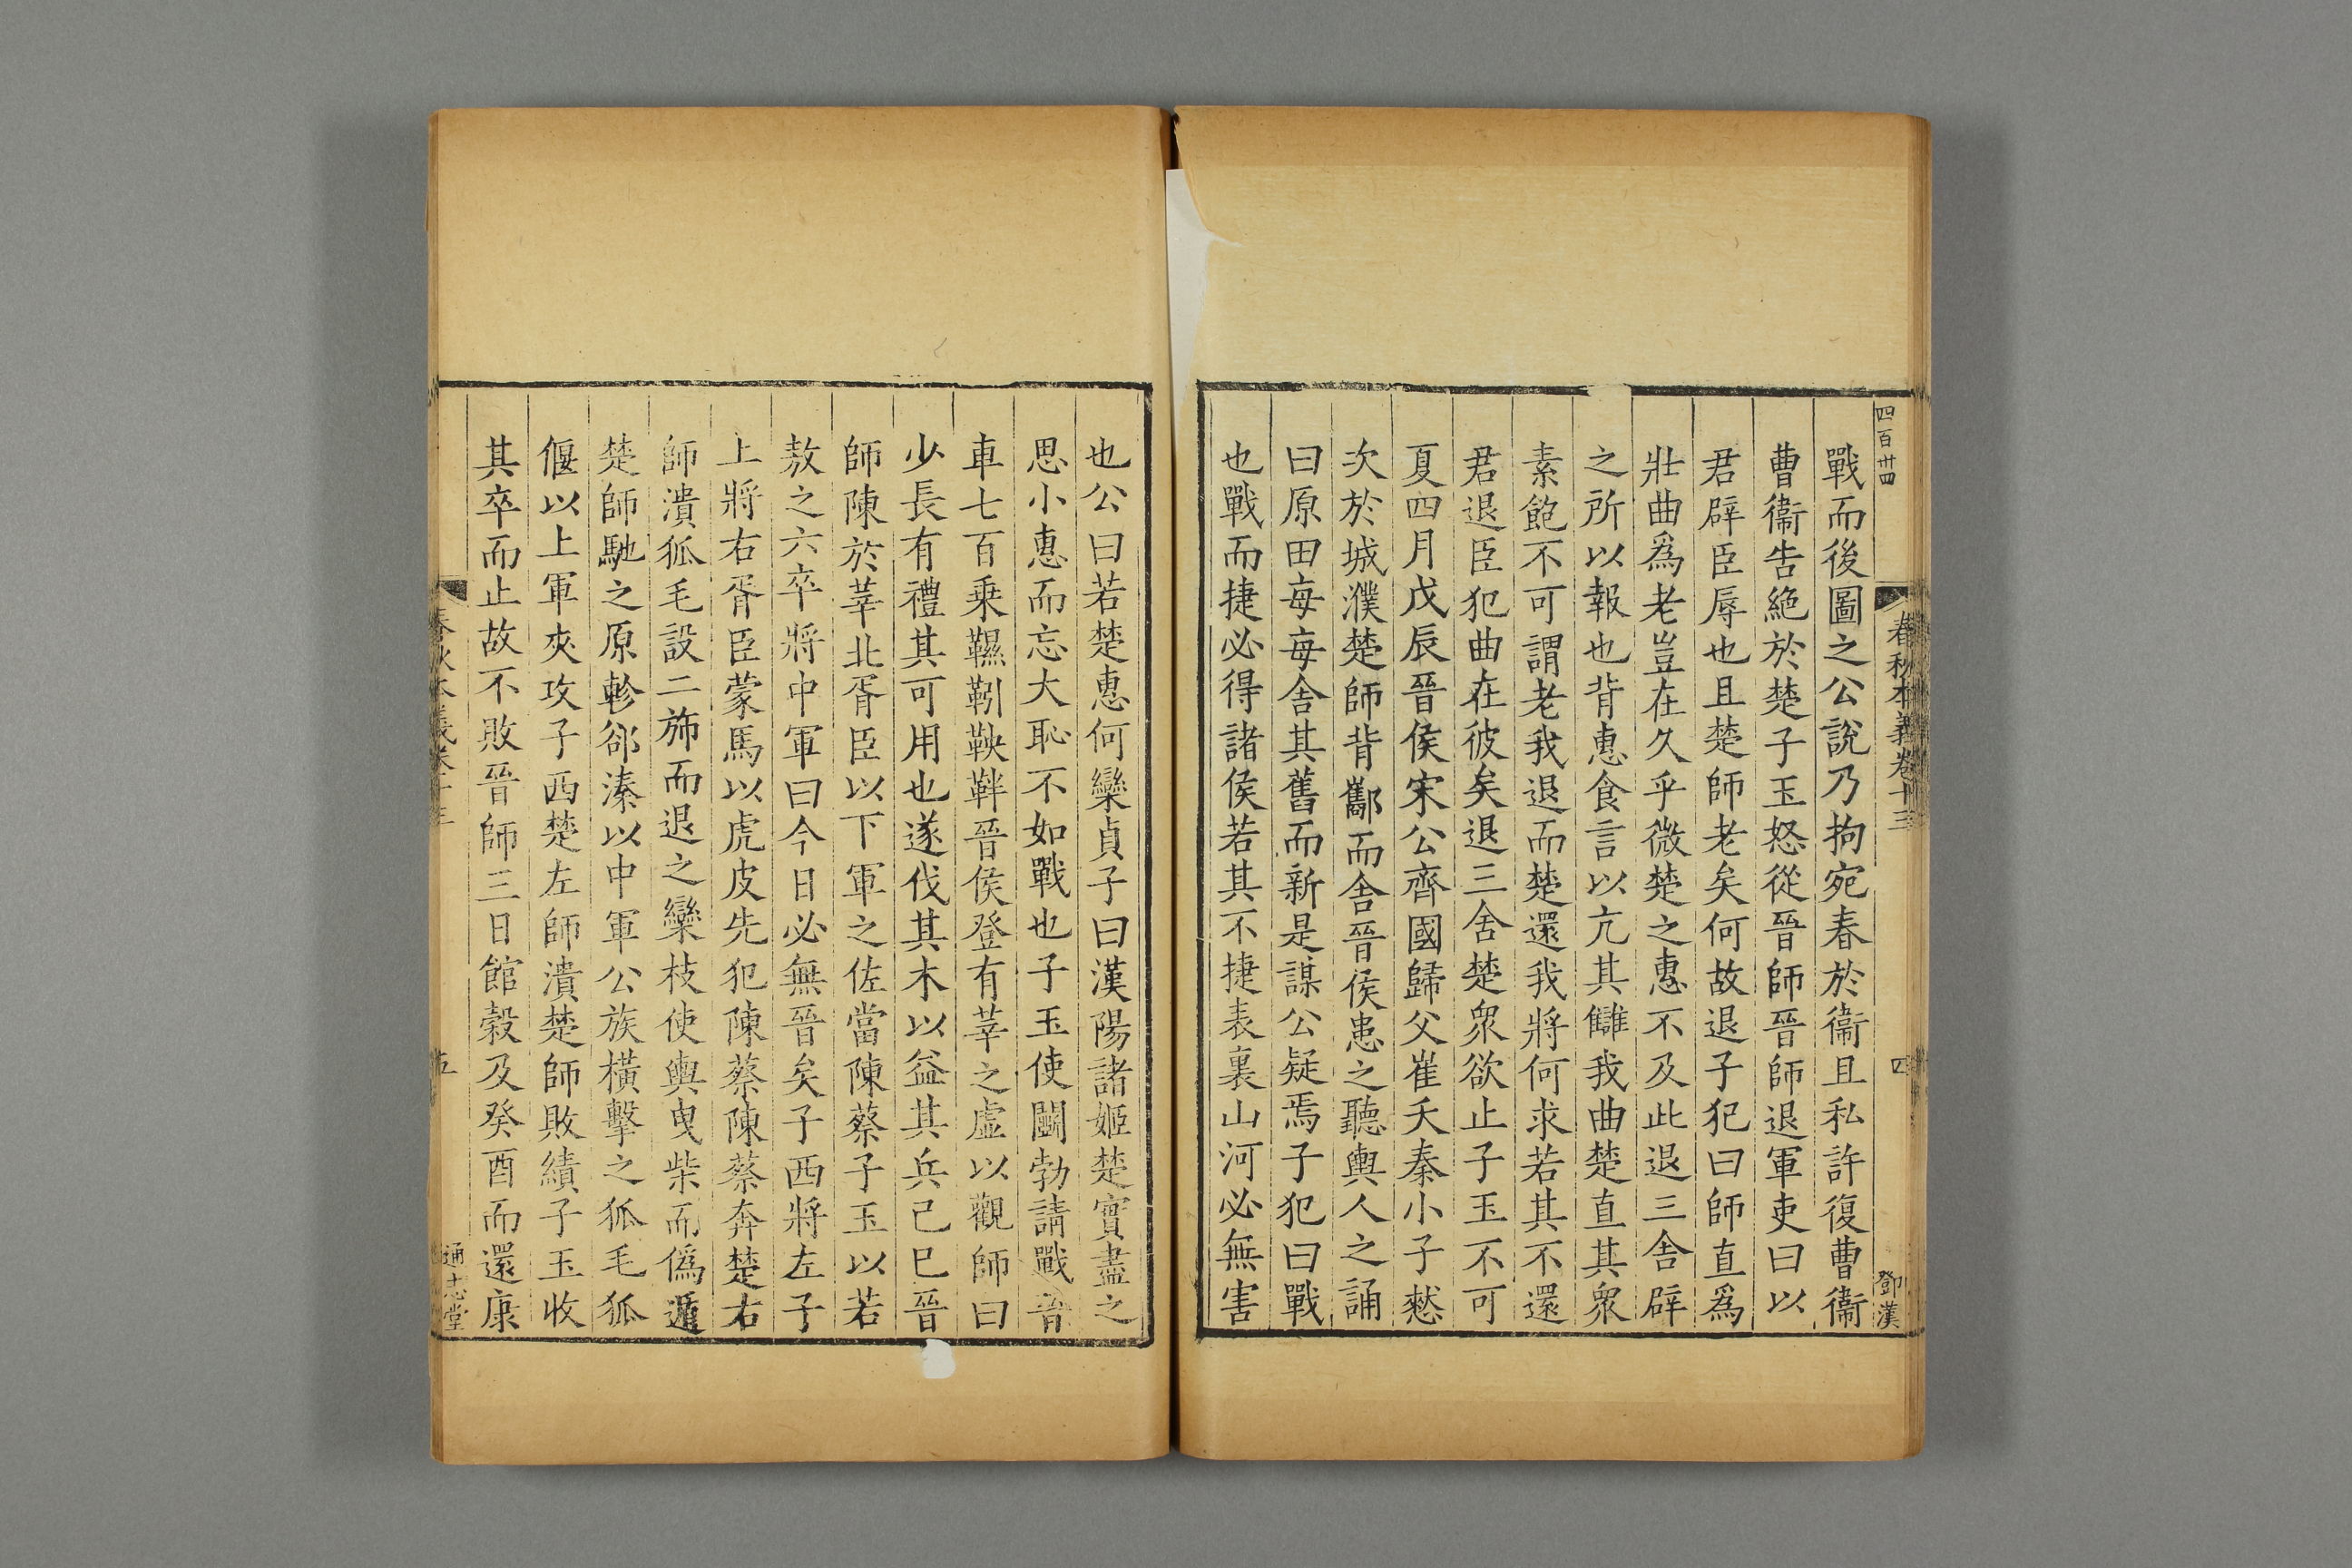 四百卄四
春秋本義卷十三
四
鄧漢
戰而後圖之公說乃拘宛春於衞且私許復曹衞
曹衞告絶於楚子玉怒從晉師晉師退軍吏曰以
君辟臣辱也且楚師老矣何故退子犯曰師直爲
壯曲爲老豈在久乎微楚之惠不及此退三舍辟
之所以報也背惠食言以亢其讎我曲楚直其衆
素飽不可謂老我退而楚還我將何求若其不還
君退臣犯曲在彼矣退三舍楚衆欲止子玉不可
夏四月戊辰晉侯宋公齊國歸父崔夭秦小子憖
次於城濮楚師背酅而舍晉侯患之聽輿人之誦
曰原田每每舍其舊而新是謀公疑焉子犯曰戰
也戰而捷必得諸侯若其不捷表裏山河必無害
也公曰若楚惠何欒貞子曰漢陽諸姬楚實盡之
思小惠而忘大恥不如戰也子玉使鬬勃請戰晉
車七百乗韅靷鞅靽晉侯登有莘之虛以觀師曰
少長有禮其可用也遂伐其木以益其兵己巳晉
師陳於莘北胥臣以下軍之佐當陳蔡子玉以若
敖之六卒將中軍曰今日必無晉矣子西將左子
上將右胥臣蒙馬以虎皮先犯陳蔡陳蔡奔楚右
師潰狐毛設二斾而退之欒枝使輿曳柴而僞遁
楚師馳之原軫郤溱以中軍公族橫擊之狐毛狐
偃以上軍夾攻子西楚左師潰楚師敗績子玉收
其卒而止故不敗晉師三日館穀及癸酉而還康
春秋本義卷十三
五
通志堂